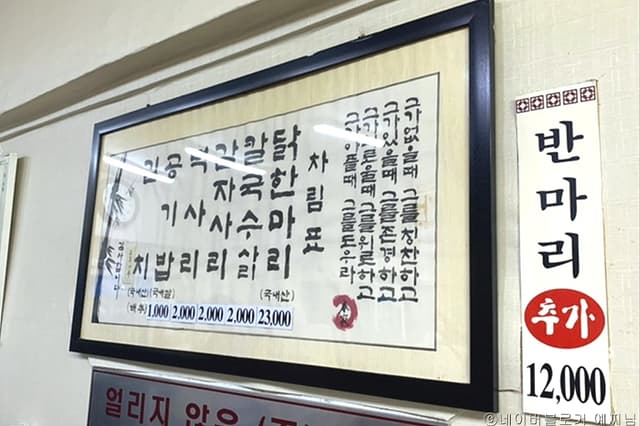 그가없을때 그를칭찬하고
그가있을때 그를존경하고
그를위로하고
그가아플때 그를도우라
차림표
닭한마리
(국내산)
23,000
칼국수사리
2,000
감자사리
2,000
떡사리
2,000
공기밥
1,000
김치
(국내산)
반마리
추가
12,000
얼리지 않은
©네이버블로거 예찌님